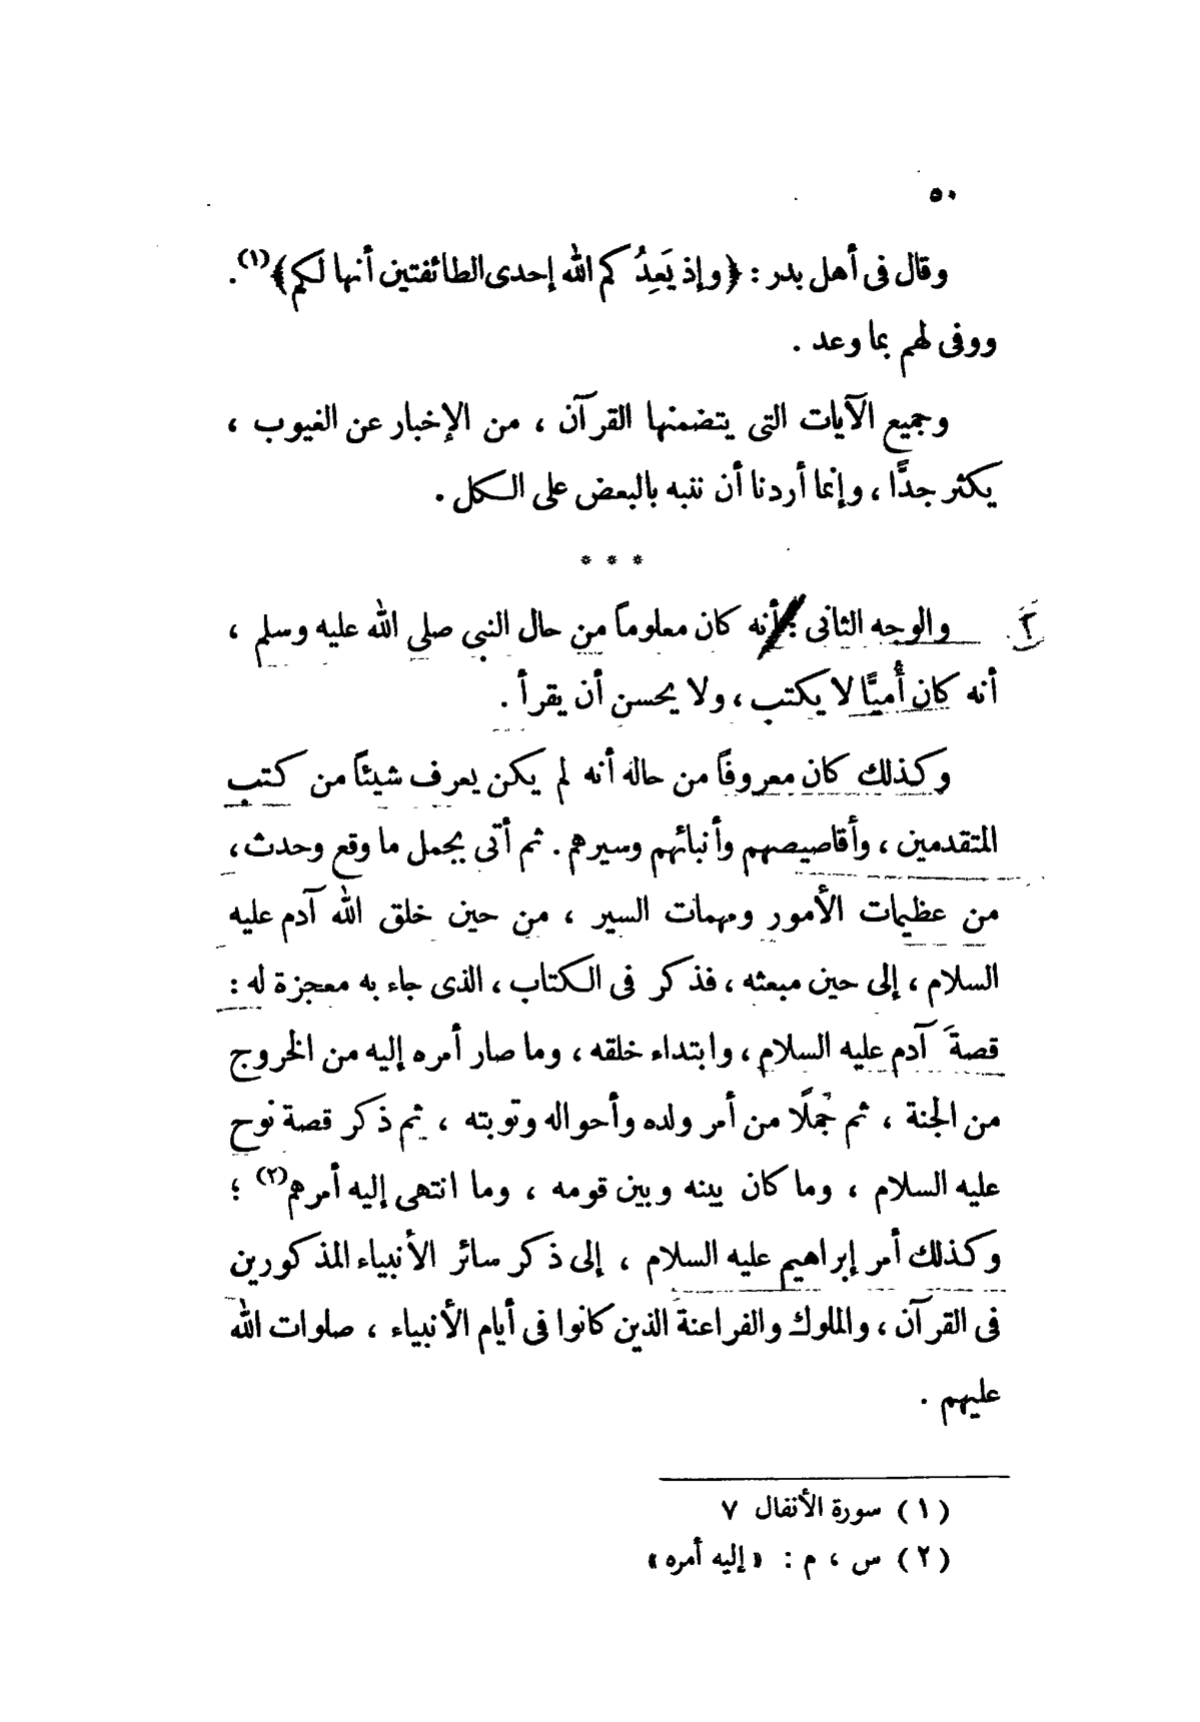 ٥٠
وقال فى أهل بدر : ﴿وإذ يَعِدُ كم الله إحدى الطائفتين أنها لكم﴾(١).
ووفى لهم بما وعد .
وجميع الآيات التى يتضمنها القرآن ، من الإخبار عن الغيوب ،
يكثر جدًّا ، وإنما أردنا أن ننبه بالبعض على الكل .
* * *
والوجه الثانى : أنه كان معلوماً من حال النبى صلى الله عليه وسلم ،
٢
أنه كان أُميًّا لا يكتب ، ولا يحسن أن يقرأ .
وكذلك كان معروفاً من حاله أنه لم يكن يعرف شيئاً من كتب
المتقدمين ، وأقاصيصهم وأنبائهم وسيرهم . ثم أتى بجمل ما وقع وحدث ،
من عظيمات الأمور ومهمات السير ، من حين خلق الله آدم عليه
السلام ، إلى حين مبعثه ، فذكر فى الكتاب ، الذى جاء به معجزة له :
قصةَ آدم عليه السلام ، وابتداء خلقه ، وما صار أمره إليه من الخروج
من الجنة ، ثم جُملًا من أمر ولده وأحواله وتوبته ، ثم ذكر قصة نوح
عليه السلام ، وما كان بينه وبين قومه ، وما انتهى إليه أمرهم(٢) ؛
وكذلك أمر إبراهيم عليه السلام ، إلى ذكر سائر الأنبياء المذكورين
فى القرآن ، والملوك والفراعنة الذين كانوا فى أيام الأنبياء ، صلوات الله
عليهم .
(١) سورة الأنفال ٧
(٢) س ، م : «إليه أمره»